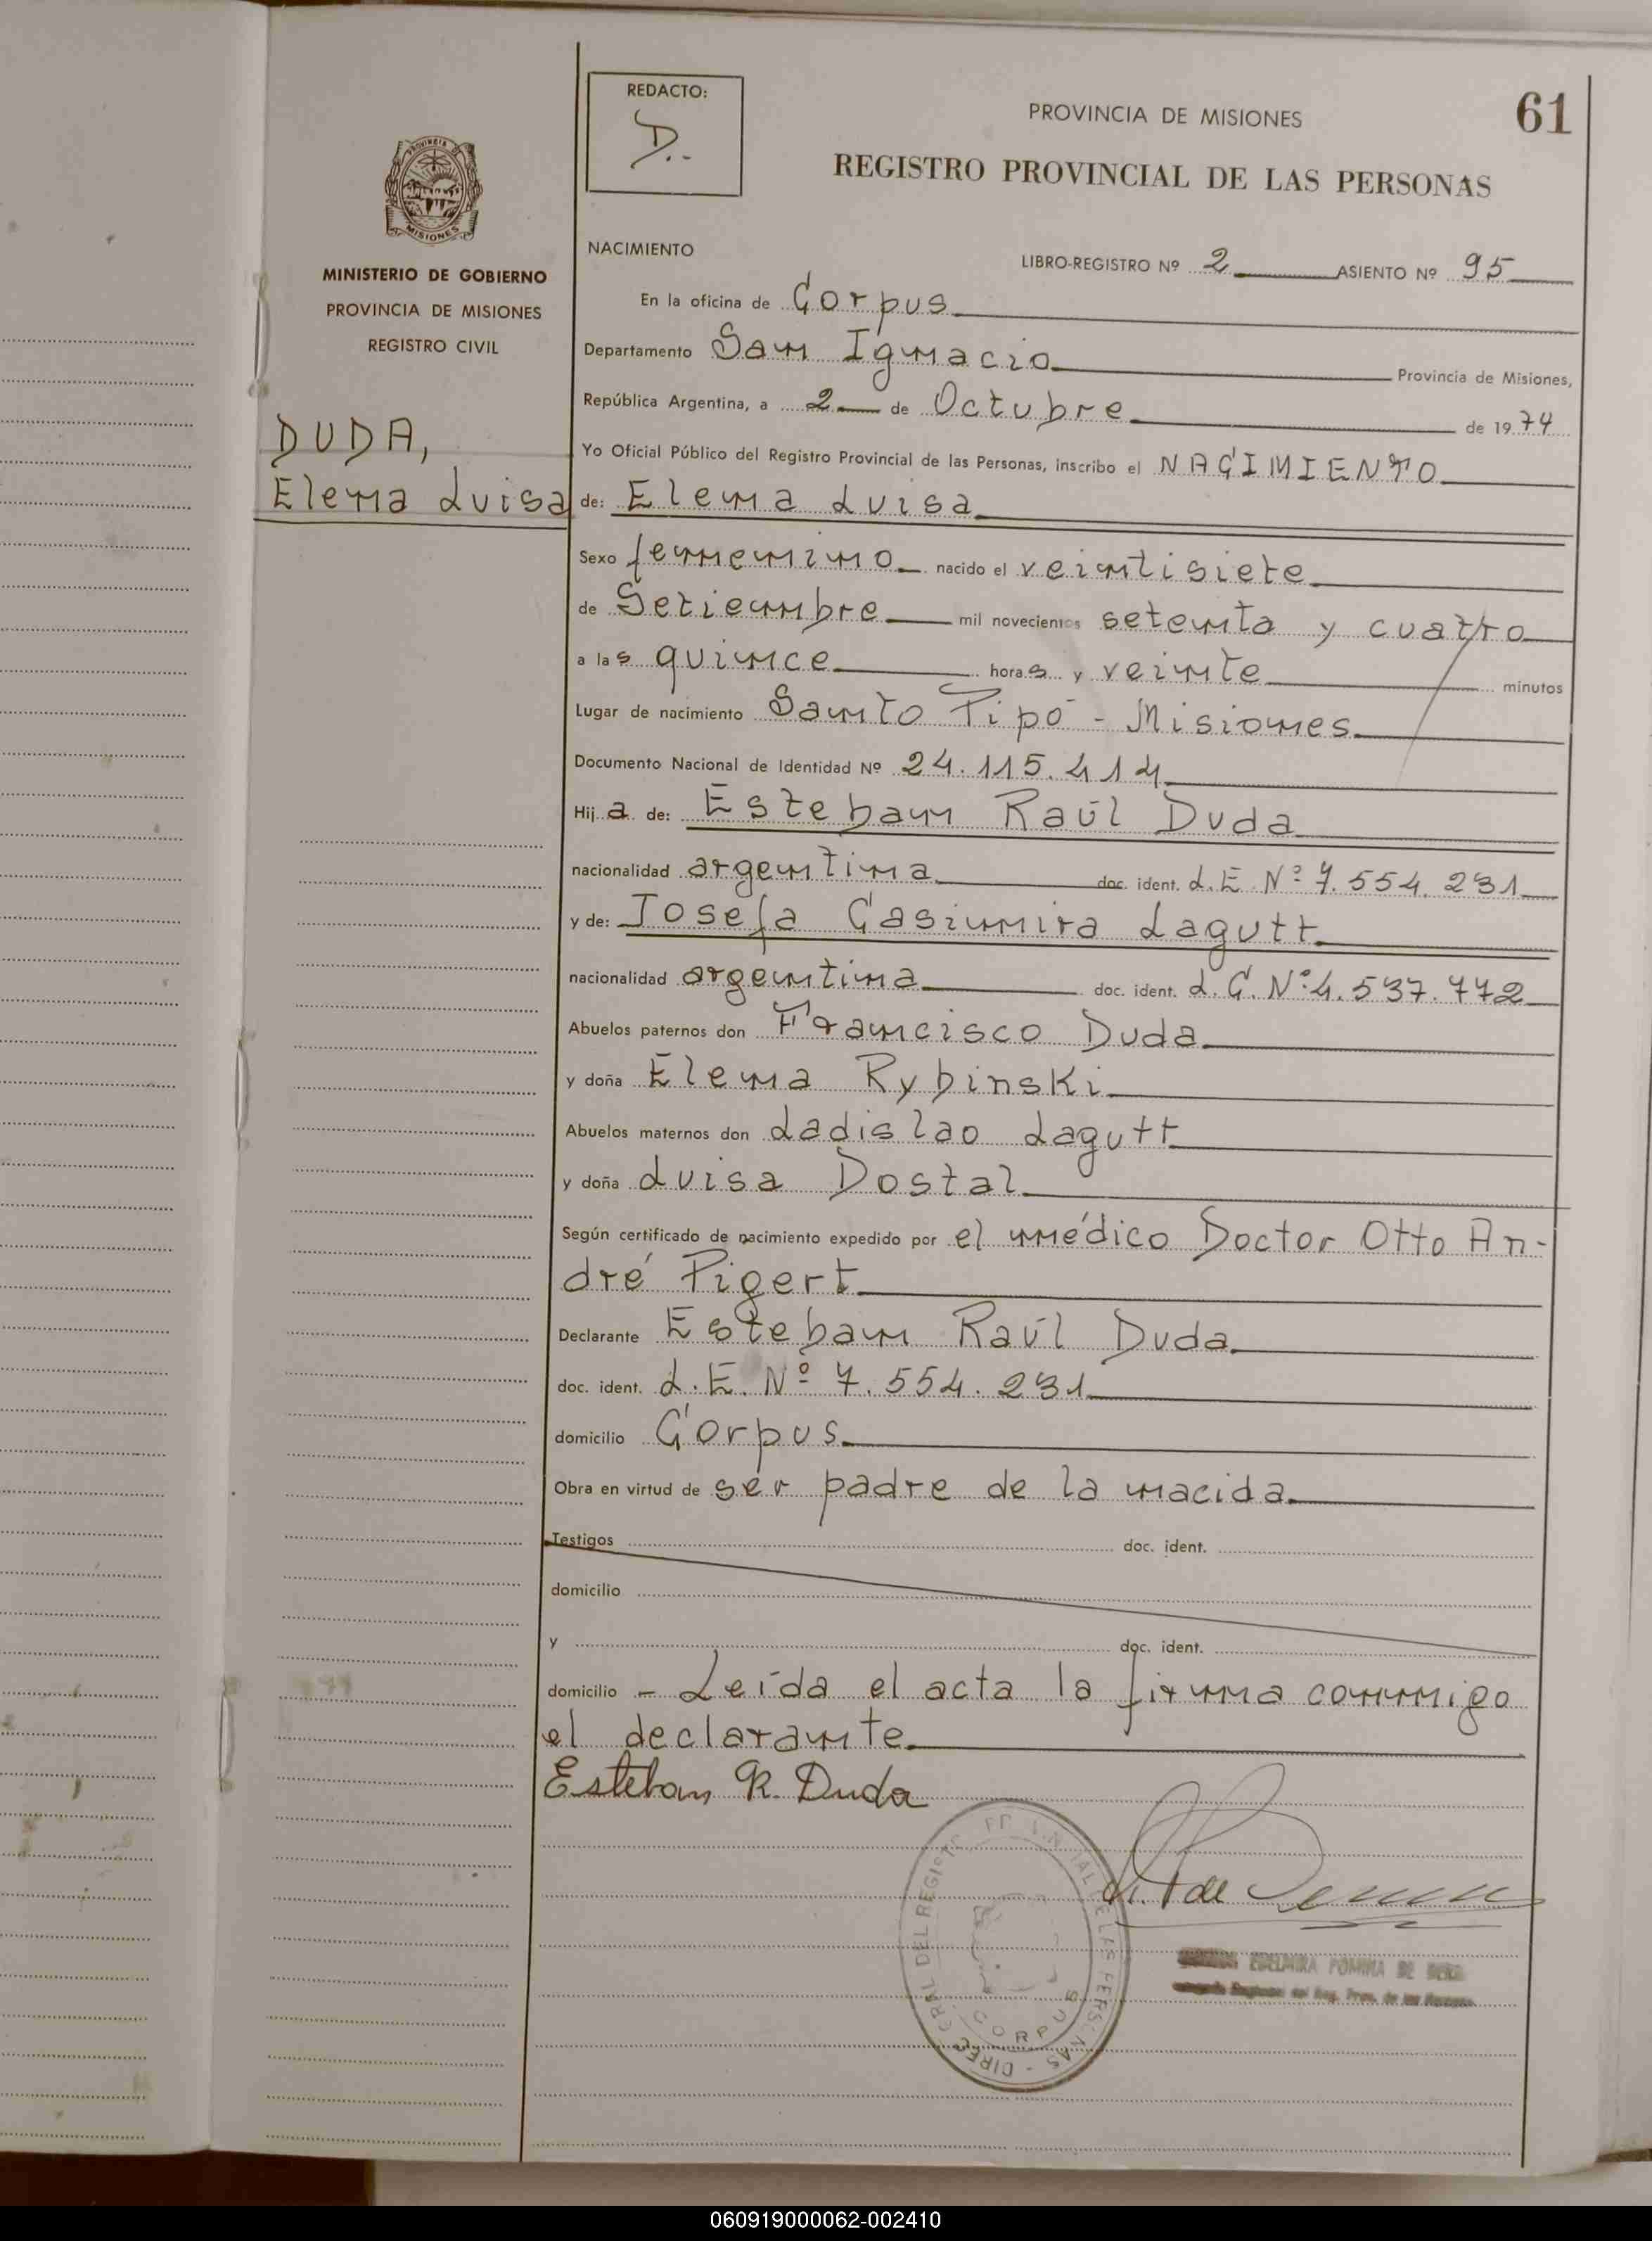 REDACTO:
D..
PROVINCIA DE MISIONES
61
REGISTRO PROVINCIAL DE LAS PERSONAS
PROVINCIA DE
MISIONES
MINISTERIO DE GOBIERNO
PROVINCIA DE MISIONES
REGISTRO CIVIL
DUDA,
Elena Luisa
NACIMIENTO
LIBRO-REGISTRO Nº 2 ASIENTO Nº 95
En la oficina de Corpus
Departamento San Ignacio Provincia de Misiones,
República Argentina, a 2 de Octubre de 1974
Yo Oficial Público del Registro Provincial de las Personas, inscribo el NACIMIENTO
de: Elena Luisa
Sexo femenino nacido el veintisiete
de Setiembre mil novecientos setenta y cuatro
a las quince horas y veinte minutos
Lugar de nacimiento Santo Pipó - Misiones
Documento Nacional de Identidad Nº 24.115.414
Hija de: Esteban Raúl Duda
nacionalidad argentina doc. ident. L.E. Nº 7.554.231
y de: Josefa Casimira Lagutt
nacionalidad argentina doc. ident. L.C. Nº 4.537.772
Abuelos paternos don Francisco Duda
y doña Elena Rybinski
Abuelos maternos don Ladislao Lagutt
y doña Luisa Dostal
Según certificado de nacimiento expedido por el médico Doctor Otto An-
dré Pigert
Declarante Esteban Raúl Duda
doc. ident. L.E. Nº 7.554.231
domicilio Corpus
Obra en virtud de ser padre de la nacida
Testigos doc. ident.
domicilio
y doc. ident.
domicilio - Leída el acta la firma conmigo
el declarante
Esteban R. Duda
DIREC. GRAL DEL REGISTRO PROVINCIAL DE LAS PERSONAS -
CORPUS
EDELMIRA POMINA DE
060919000062-002410